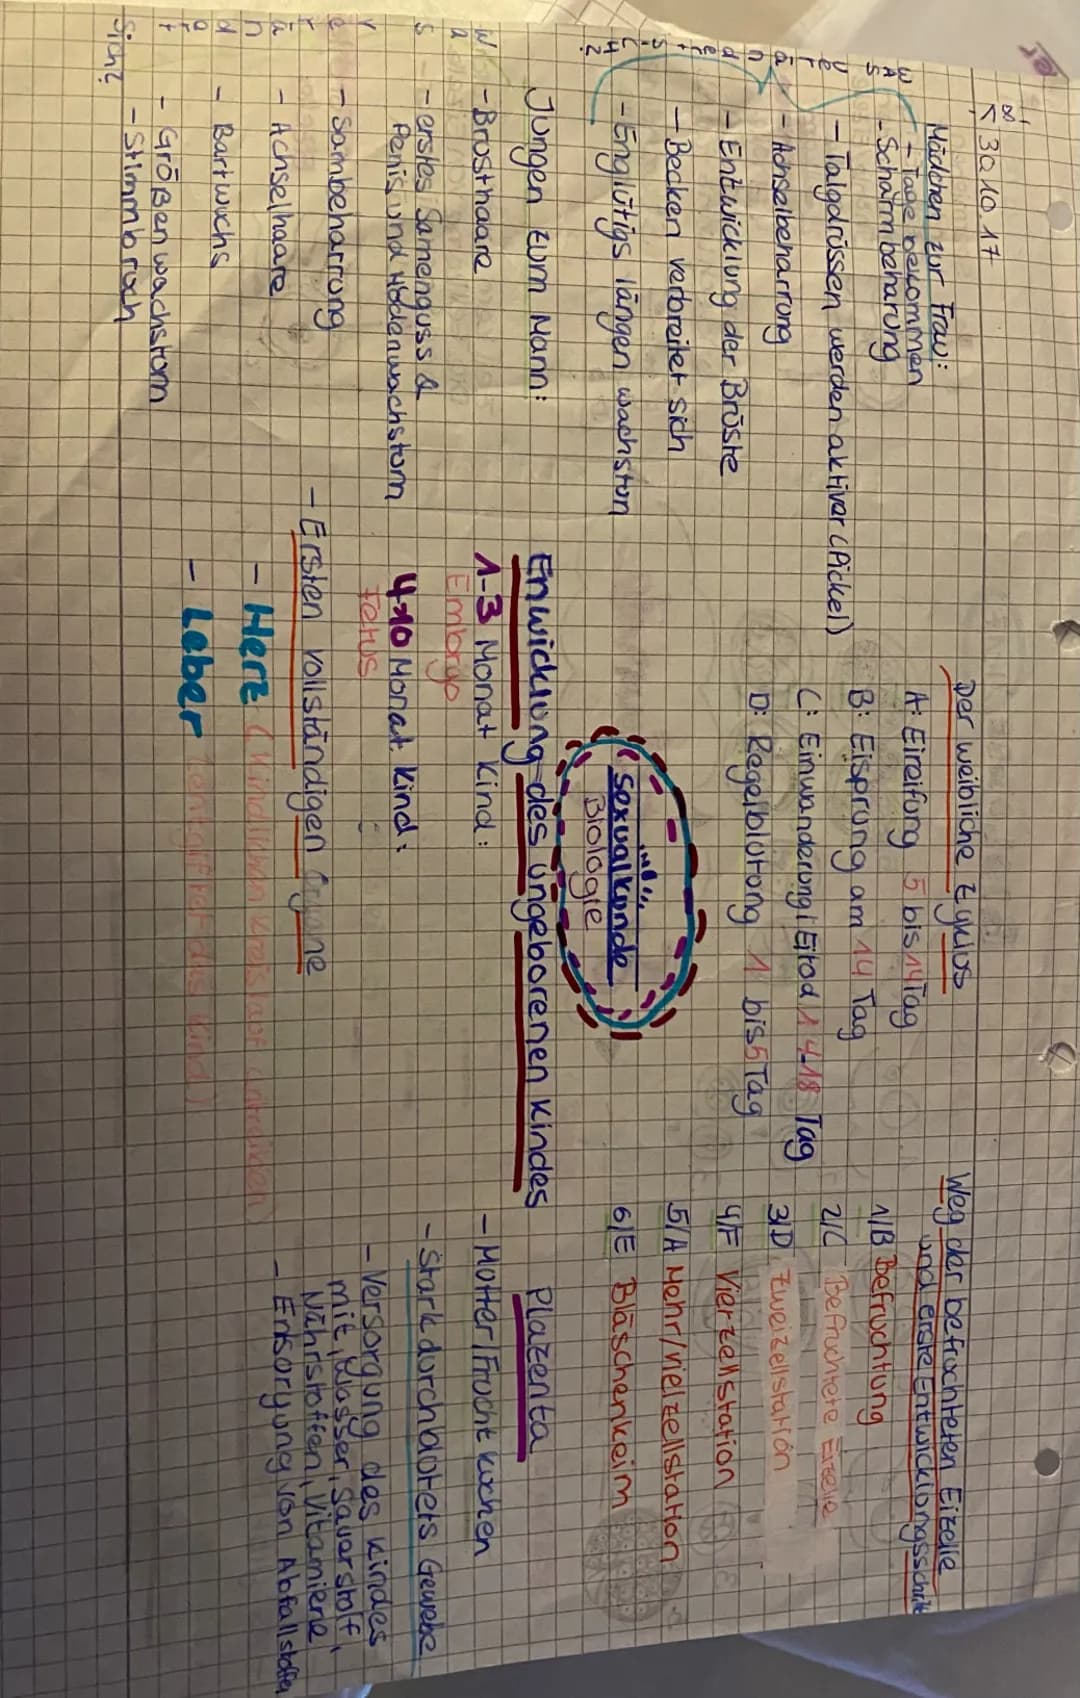 30.10.17
Mädchen zur Frau:
- Tage bekommen
- Schambeharung
- Talgdrüssen werden aktiver (Pickel)
- Achselbeharrung
- Entwicklung der Brüste
- Becken verbreitet sich
- Englütigs längen wachstum
Was verändert sich?
Jungen zum Mann:
- Brusthaare
- erstes Samenguss &
Penis und Hodenwachstum
- Sambeharrung
- Achselhaare
- Bartwuchs
- Größenwachstom
- Stimmbruch
Was verändert sich?
Der weibliche Zyklus
A: Eireifung 5 bis 14 Tag
B: Eisprung am 14 Tag
C: Einwanderung, Eitod 14-18 Tag
D: Regelblutung 1 bis 5 Tag
Sexualkunde
Biologie
Weg der befruchteten Eizelle
und erste Entwicklungsschritte
1/B Befruchtung
2/C Befruchtete Eizelle
3/D Zweizellstation
4/F Vierzellstation
5/A Mehr/vielzellstation
6/E Bläschenkeim
Enwicklung des ungeborenen Kindes
1-3 Monat Kind:
Embryo
4-10 Monat Kind:
Fetus
- Ersten vollständigen Organe
- Herz (Kindlichen Kreislauf
- Leber (entgiftet das Kind)
Plazenta
- Mutter/Frucht kuchen
- Stark durchblutets Gewebe
- Versorgung des Kindes
mit, Wasser, Sauerstoff,
Nährstoffen, Vitamiene
- Entsorgung von Abfallstoffen